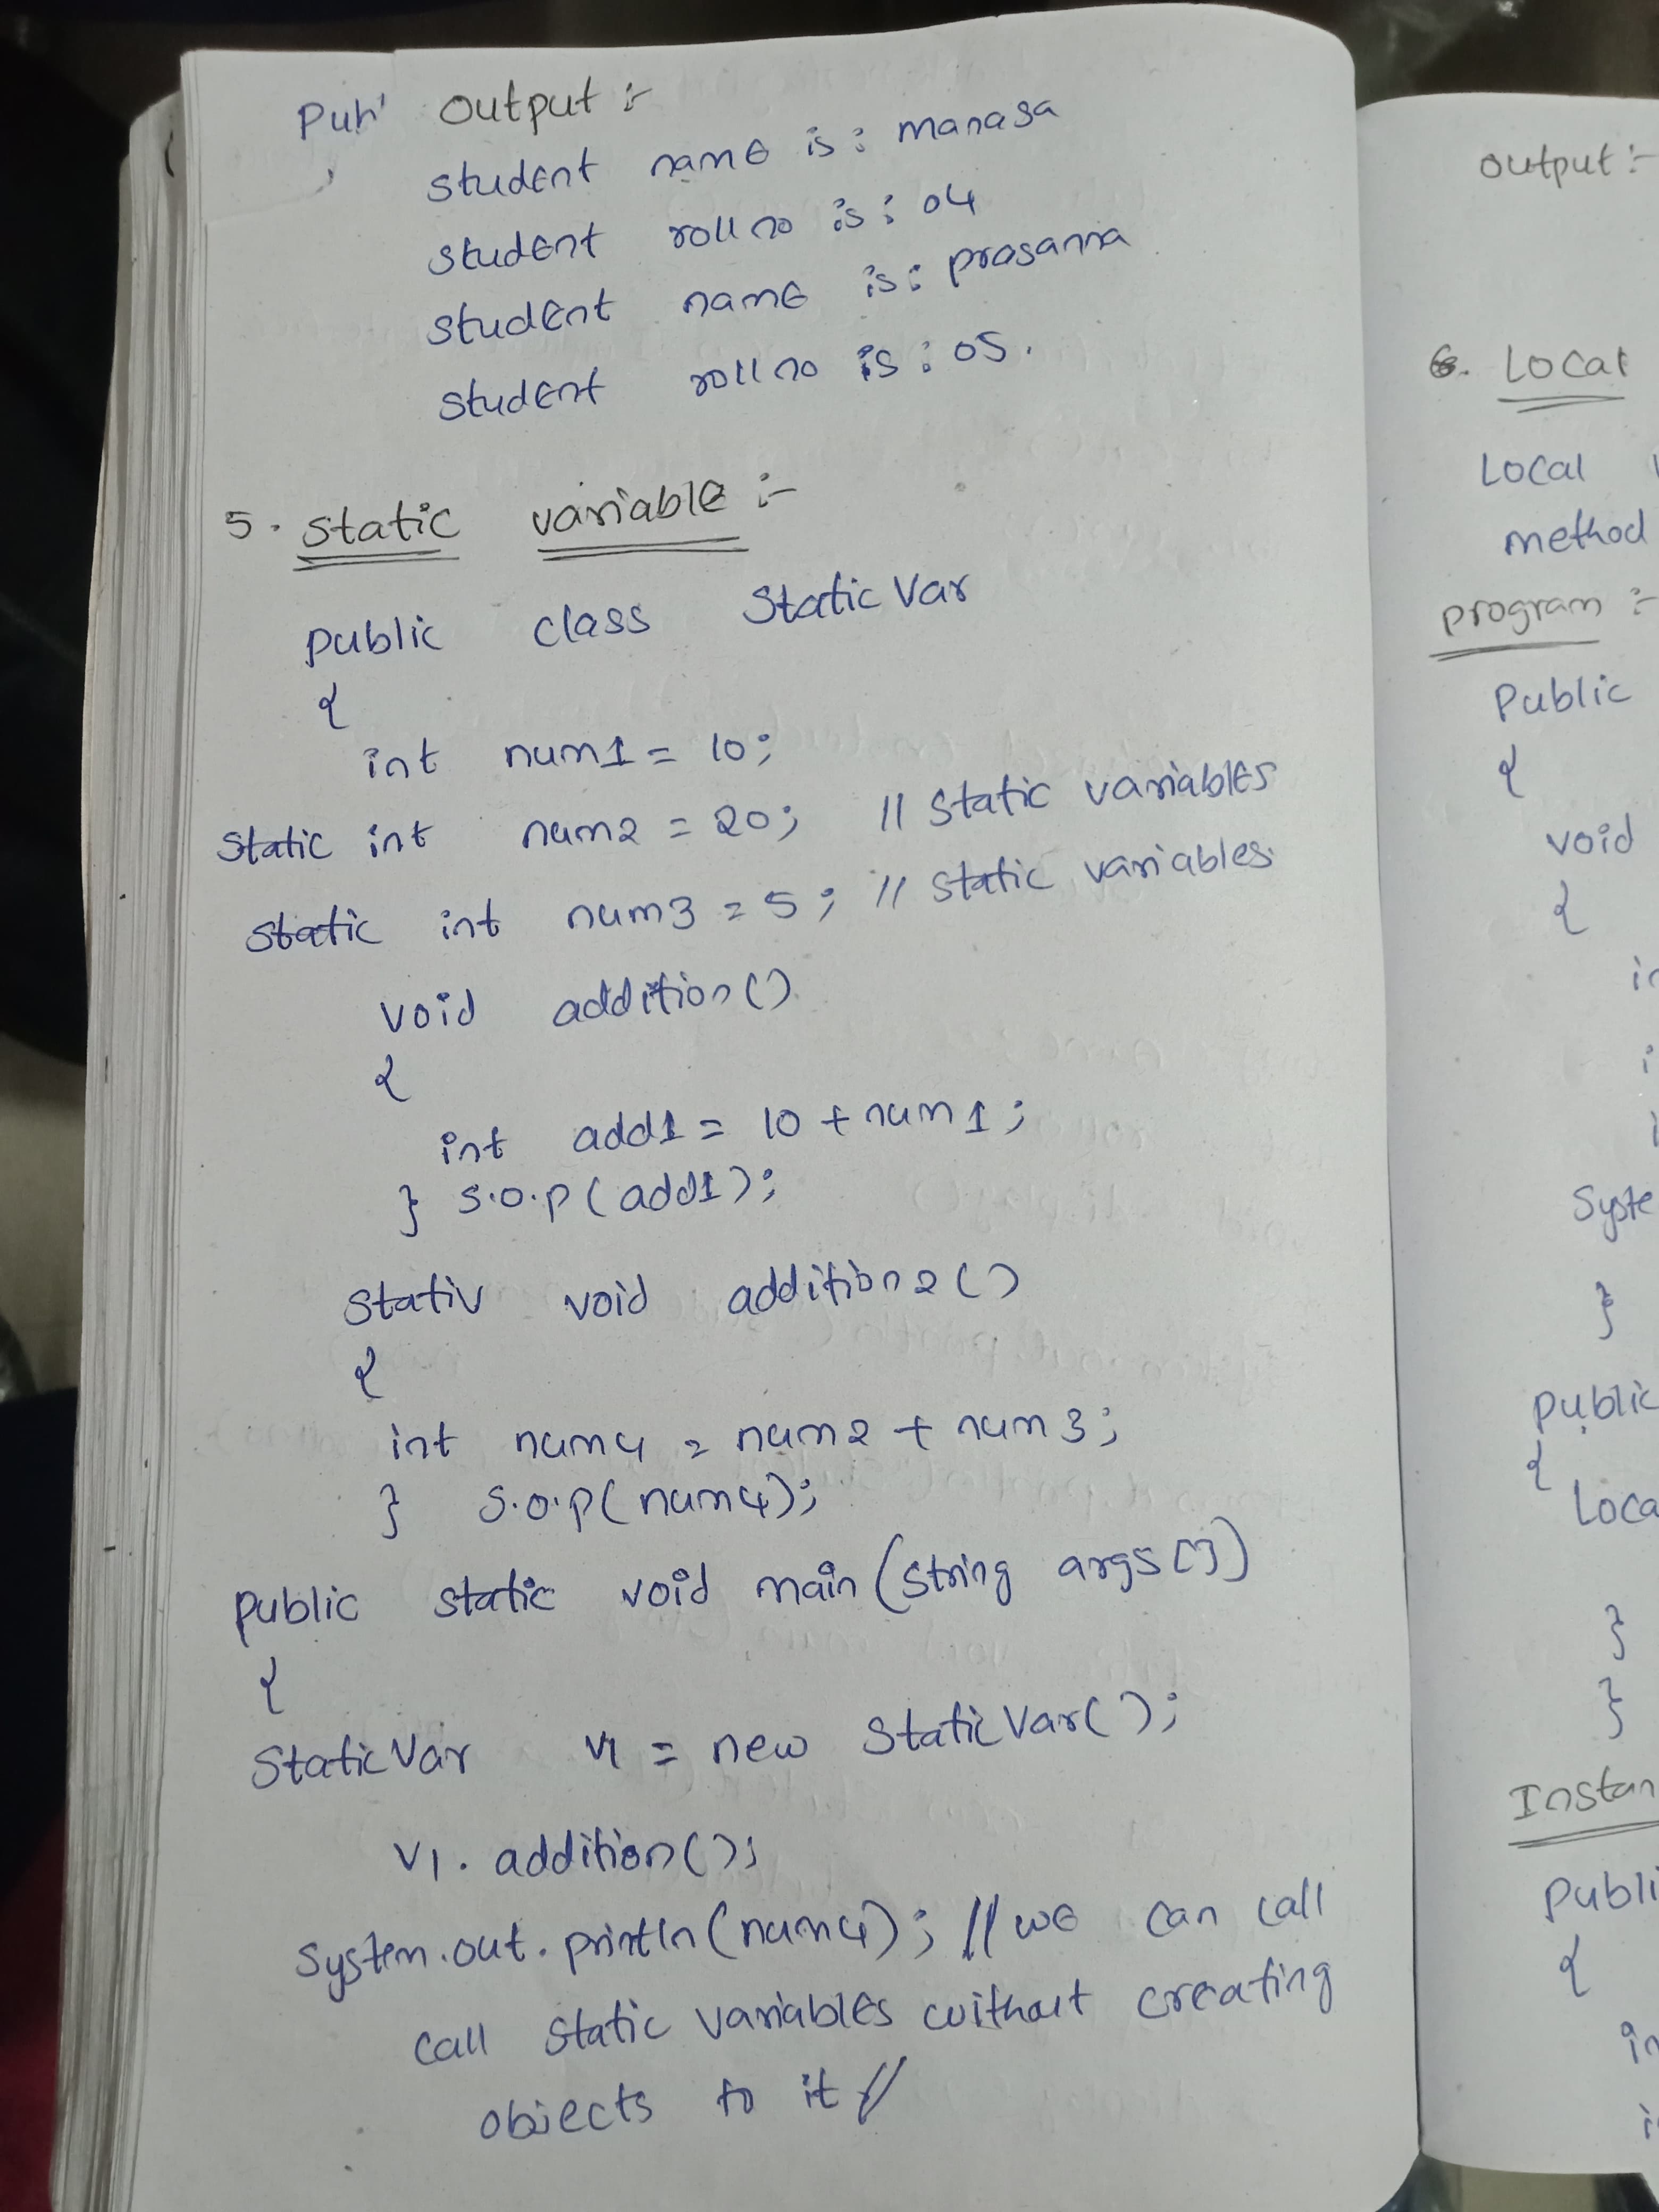 Output :-
Student name is : manasa
Student roll no is : 04
Student name is : prasanna
Student roll no is : 05.
5. Static variable :-
public class StaticVar
{
int num1 = 10;
Static int num2 = 20; // Static variables
Static int num3 = 5; // Static variables.
void addition()
{
int add1 = 10 + num1;
} S.O.P(add1);
Stativ void addition2()
{
int num4 = num2 + num3;
} S.O.P(num4);
public static void main(String args[])
{
StaticVar v1 = new StaticVar();
v1.addition();
System.out.println(num4); // we can call
call static variables without creating
objects to it //
output :-
6. Local
Local
method
program :-
Public
{
void
{
Syste
}
Public
{
Loca
}
}
Instan
Publi
{